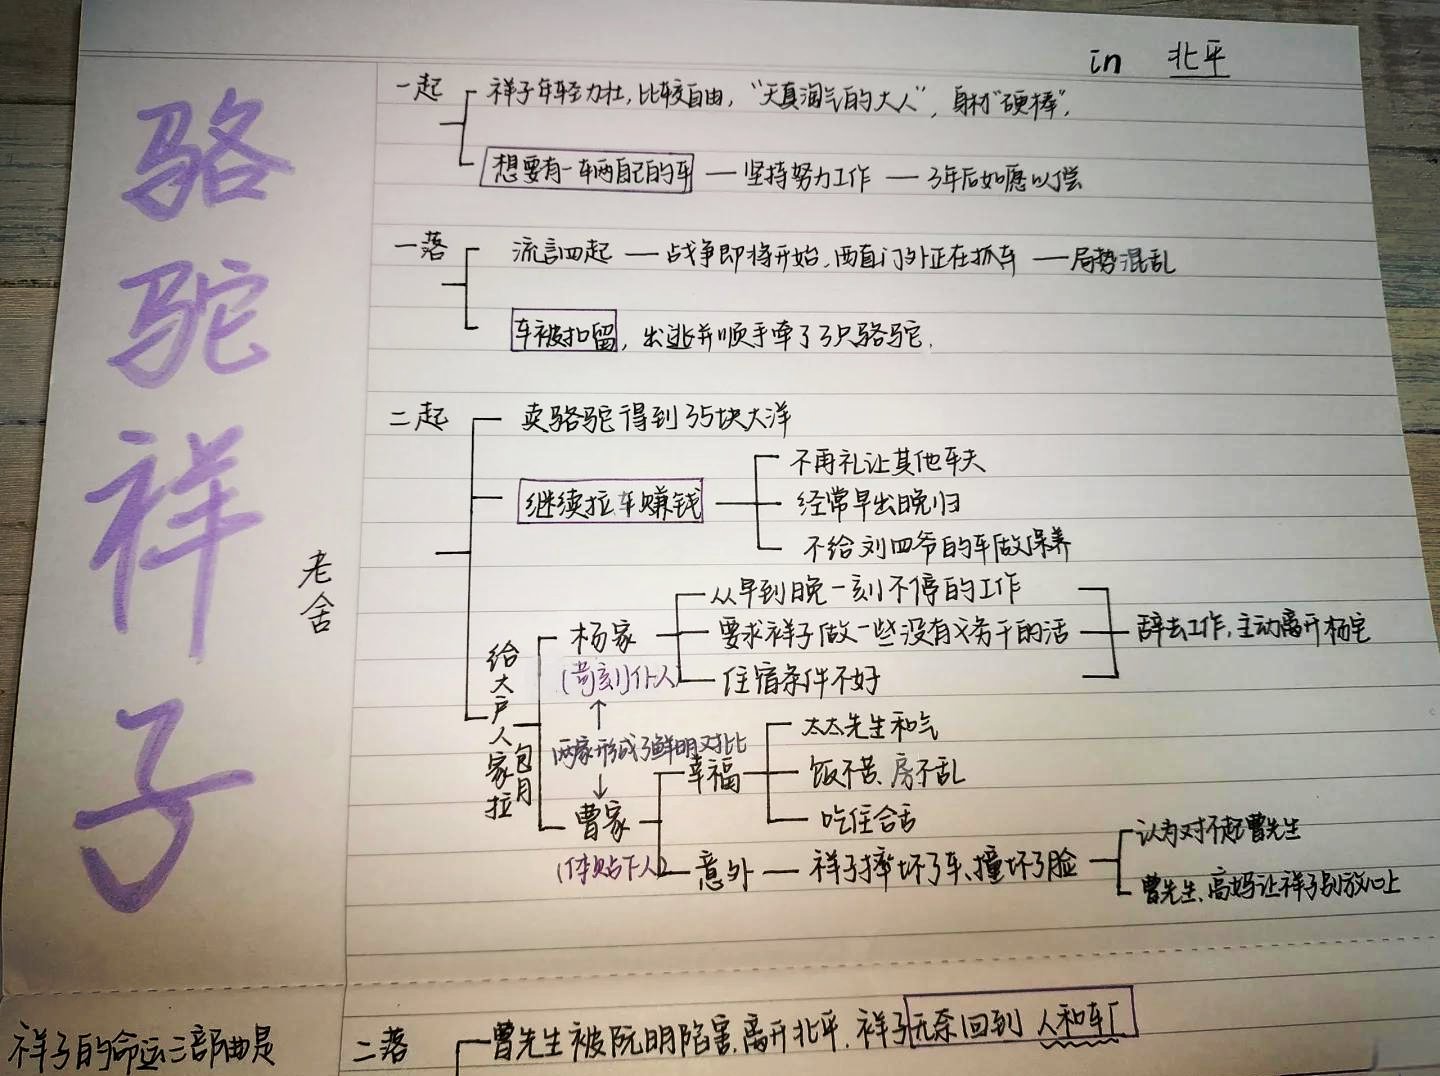 in 北平
骆驼祥子
老舍
一起
祥子年轻力壮，比较自由，“天真淘气的大人”，身材“硬棒”，
想要有一车两自己的车 — 坚持努力工作 — 3年后如愿以偿
一落
流言四起 — 战争即将开始，西直门外正在抓车 — 局势混乱
车被扣留，出逃并顺手牵了3只骆驼．
二起
卖骆驼得到35块大洋
继续拉车赚钱
不再礼让其他车夫
经常早出晚归
不给刘四爷的车做保养
给大户人家拉包月
杨家
(苛刻仆人)
从早到晚一刻不停的工作
要求祥子做一些没有义务干的活
住宿条件不好
辞去工作，主动离开杨宅
两家形成了鲜明对比
曹家
(体贴下人)
幸福
太太先生和气
饭不苦、房不乱
吃住合舌
意外 — 祥子摔坏了车、撞坏了脸
认为对不起曹先生
曹先生、高妈让祥子别放心上
祥子的命运三部曲是
二落
曹先生被阮明陷害，离开北平．祥子无奈回到人和车厂